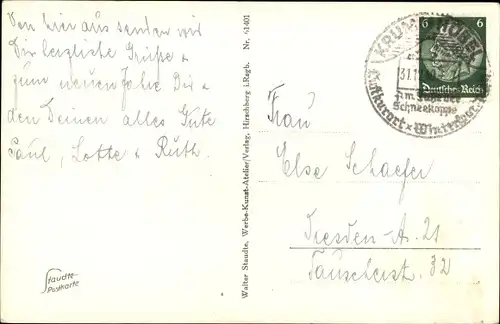 Von hier aus senden wir
Dir herzliche Grüße &
zum neuen Jahre Dir &
den Deinen alles Gute
Paul, Lotte & Ruth.
Staudte-
Postkarte
Walter Staudte, Werbe-Kunst-Atelier/Verlag, Hirschberg i. Rsgb. Nr. 61401
KRUMMHÜBEL
31.12
Am Fuße der
Schneekoppe
Luftkurort * Wintersport
6 6
Deutsches Reich
Frau
Else Schaefer
Dresden-A. 21
Tauscherst. 32